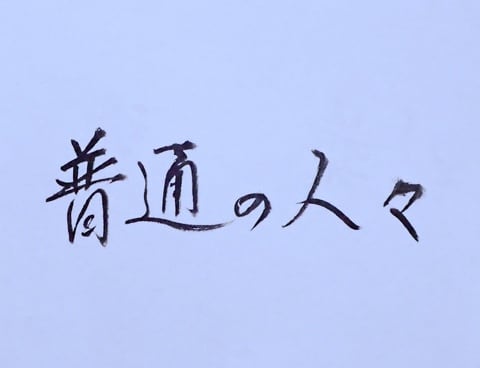 普通の人々